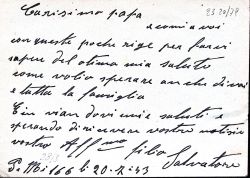 Carissimo papa
e comi a voi
con queste poche rige per farvi
sapere del otima mia salute
come voglio sperare anche di voi
e tutta la famiglia
mia saluti e
sperando di ricevere vostre notizie
vostro Aff.mo filio
Salvatore
P. M. 166 li 20-7-43